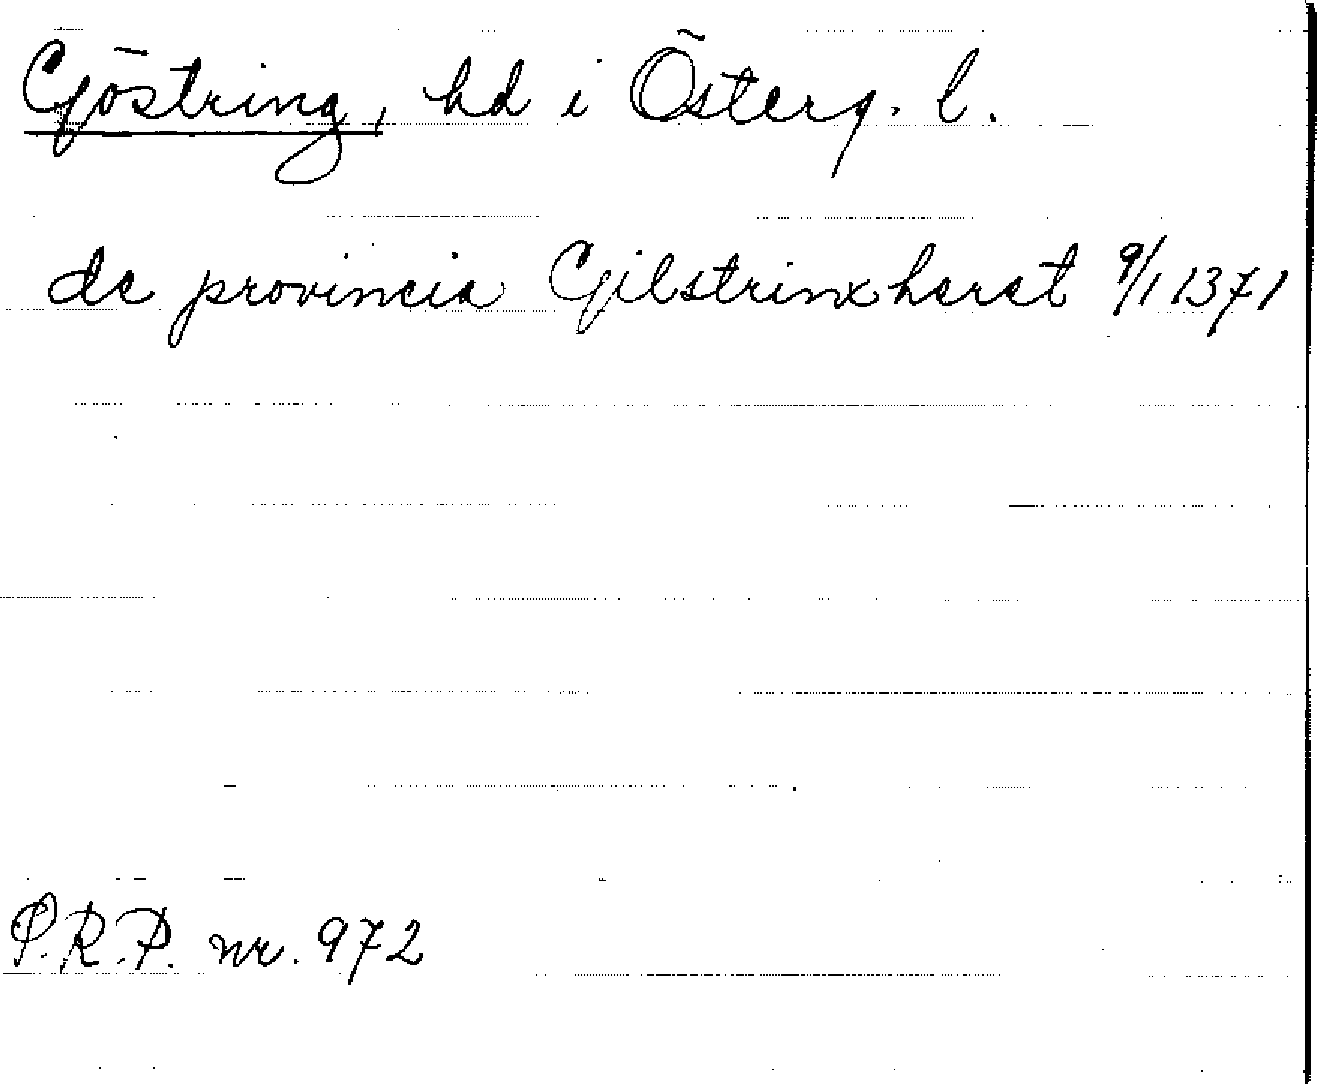 Göstring, hd i Österg. l.
de provincia Gilstrinxharat 9/1 1371
P.R.P. nr. 972